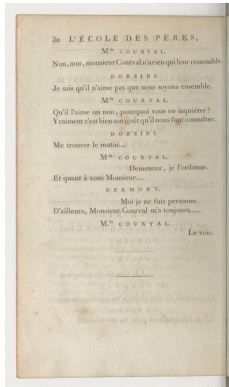 30 L'ÉCOLE DES PERES,
Mde COURVAL.
Non, non, monsieur Courval n'a rien qui leur ressemble.
DORSINI.
Je sais qu'il n'aime pas que nous soyons ensemble.
Mde COURVAL.
Qu'il l'aime ou non, pourquoi vous en inquiéter?
Vraiment c'est bien son goût qu'il nous faut consulter.
DORSINI.
Me trouver le matin....
Mde COURVAL.
Demeurez, je l'ordonne.
Et quant à vous Monsieur....
DERMONT.
Moi je ne fuis personne.
D'ailleurs, Monsieur Courval m'a toujours.....
Mde COURVAL.
Le voir.